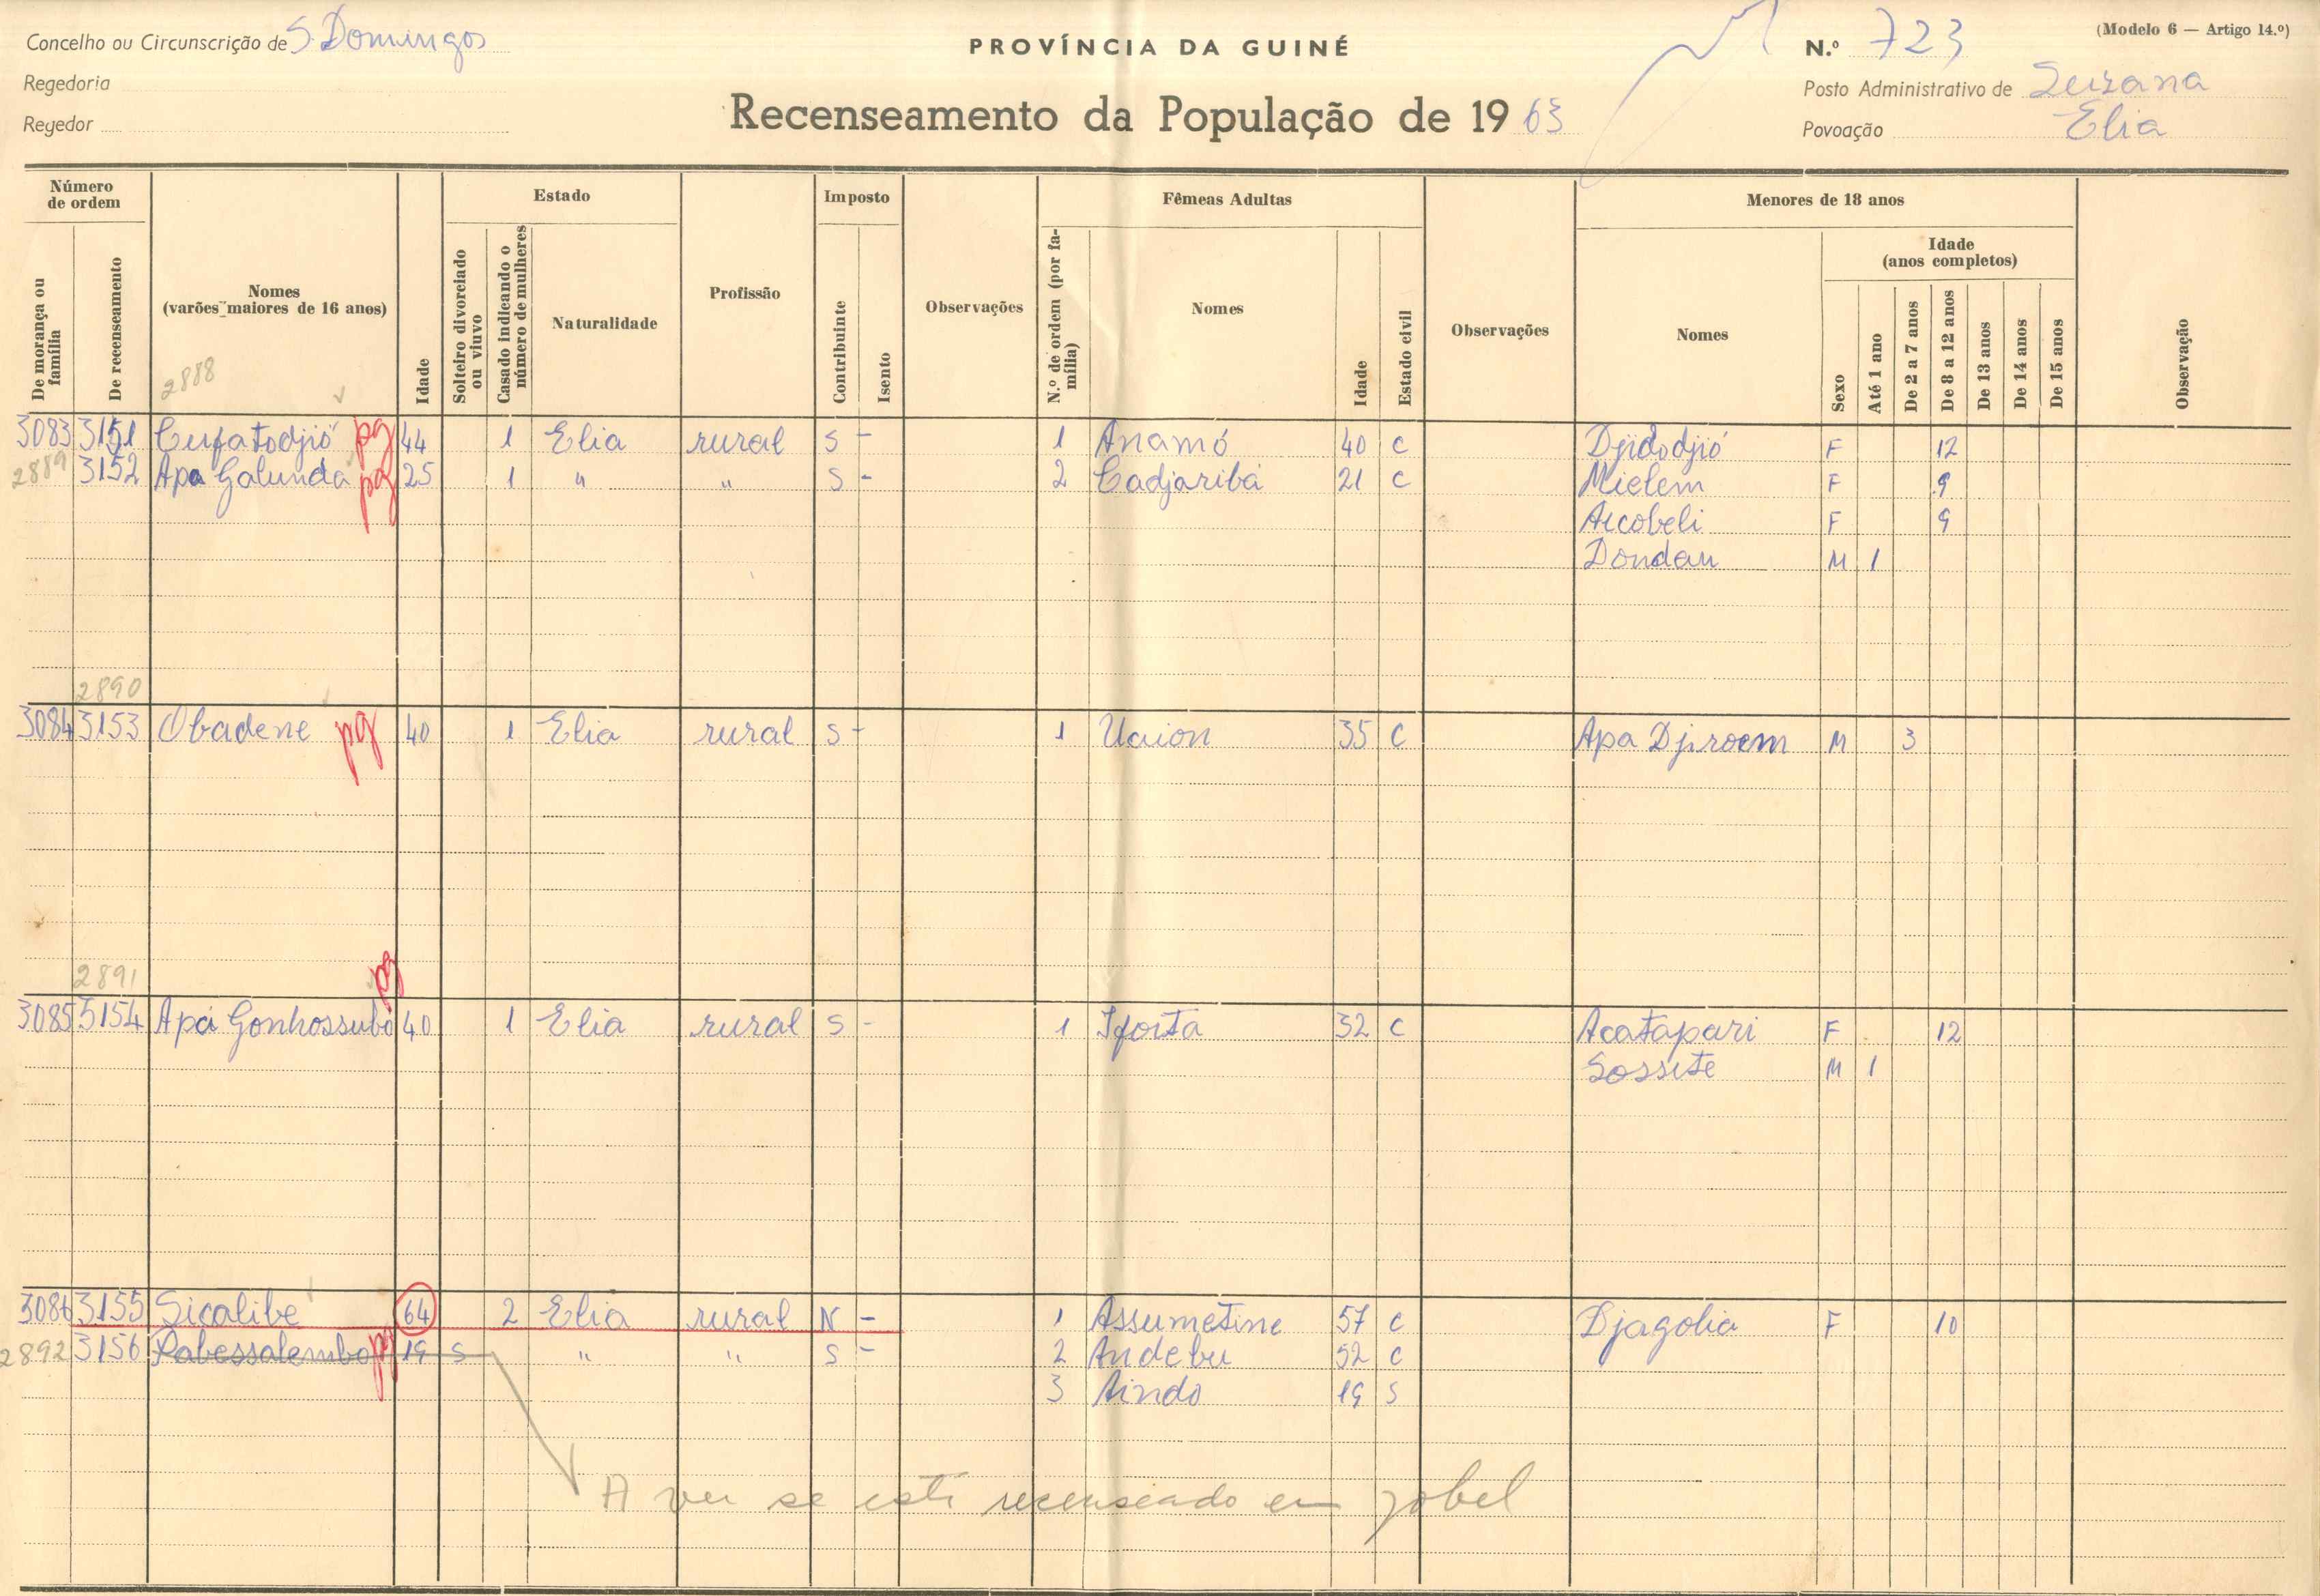 Concelho ou Circunscrição de S. Domingos
Regedoria
Regedor
PROVÍNCIA DA GUINÉ
Recenseamento da População de 19 63
(Modelo 6 — Artigo 14.º)
N.º 723
Posto Administrativo de Suzana
Povoação Elia
Número de ordem
De morança ou família
De recenseamento
Nomes
(varões maiores de 16 anos)
2888
Idade
Estado
Solteiro divorciado ou viuvo
Casado indicando o número de mulheres
Naturalidade
Profissão
Imposto
Contribuinte
Isento
Observações
Fêmeas Adultas
N.º de ordem (por família)
Nomes
Idade
Estado civil
Observações
Menores de 18 anos
Nomes
Sexo
Idade
(anos completos)
Até 1 ano
De 2 a 7 anos
De 8 a 12 anos
De 13 anos
De 14 anos
De 15 anos
Observação
3083 3151 Cufatodjió pg 44 1 Elia rural S - 1 Anamó 40 C Djidodjió F 12
2889 3152 Apa Galunda pg 25 1 " " S - 2 Cadjaribá 21 C Mielem F 9
Aicobeli F 9
Dondau M 1
2890
3084 3153 Obadene pg 40 1 Elia rural S - 1 Uaion 35 C Apa Djiroem M 3
2891 pg
3085 3154 Apá Gonhossubó 40 1 Elia rural S - 1 Iforta 32 C Acatapari F 12
Sossite M 1
3086 3155 Sicalibe 64 2 Elia rural N - 1 Assumetine 57 C Djagolia F 10
2892 3156 Pabessalembo pg 19 S " " S - 2 Andebu 52 C
3 Aindo 19 S
A ver se está recenseado em Jobel